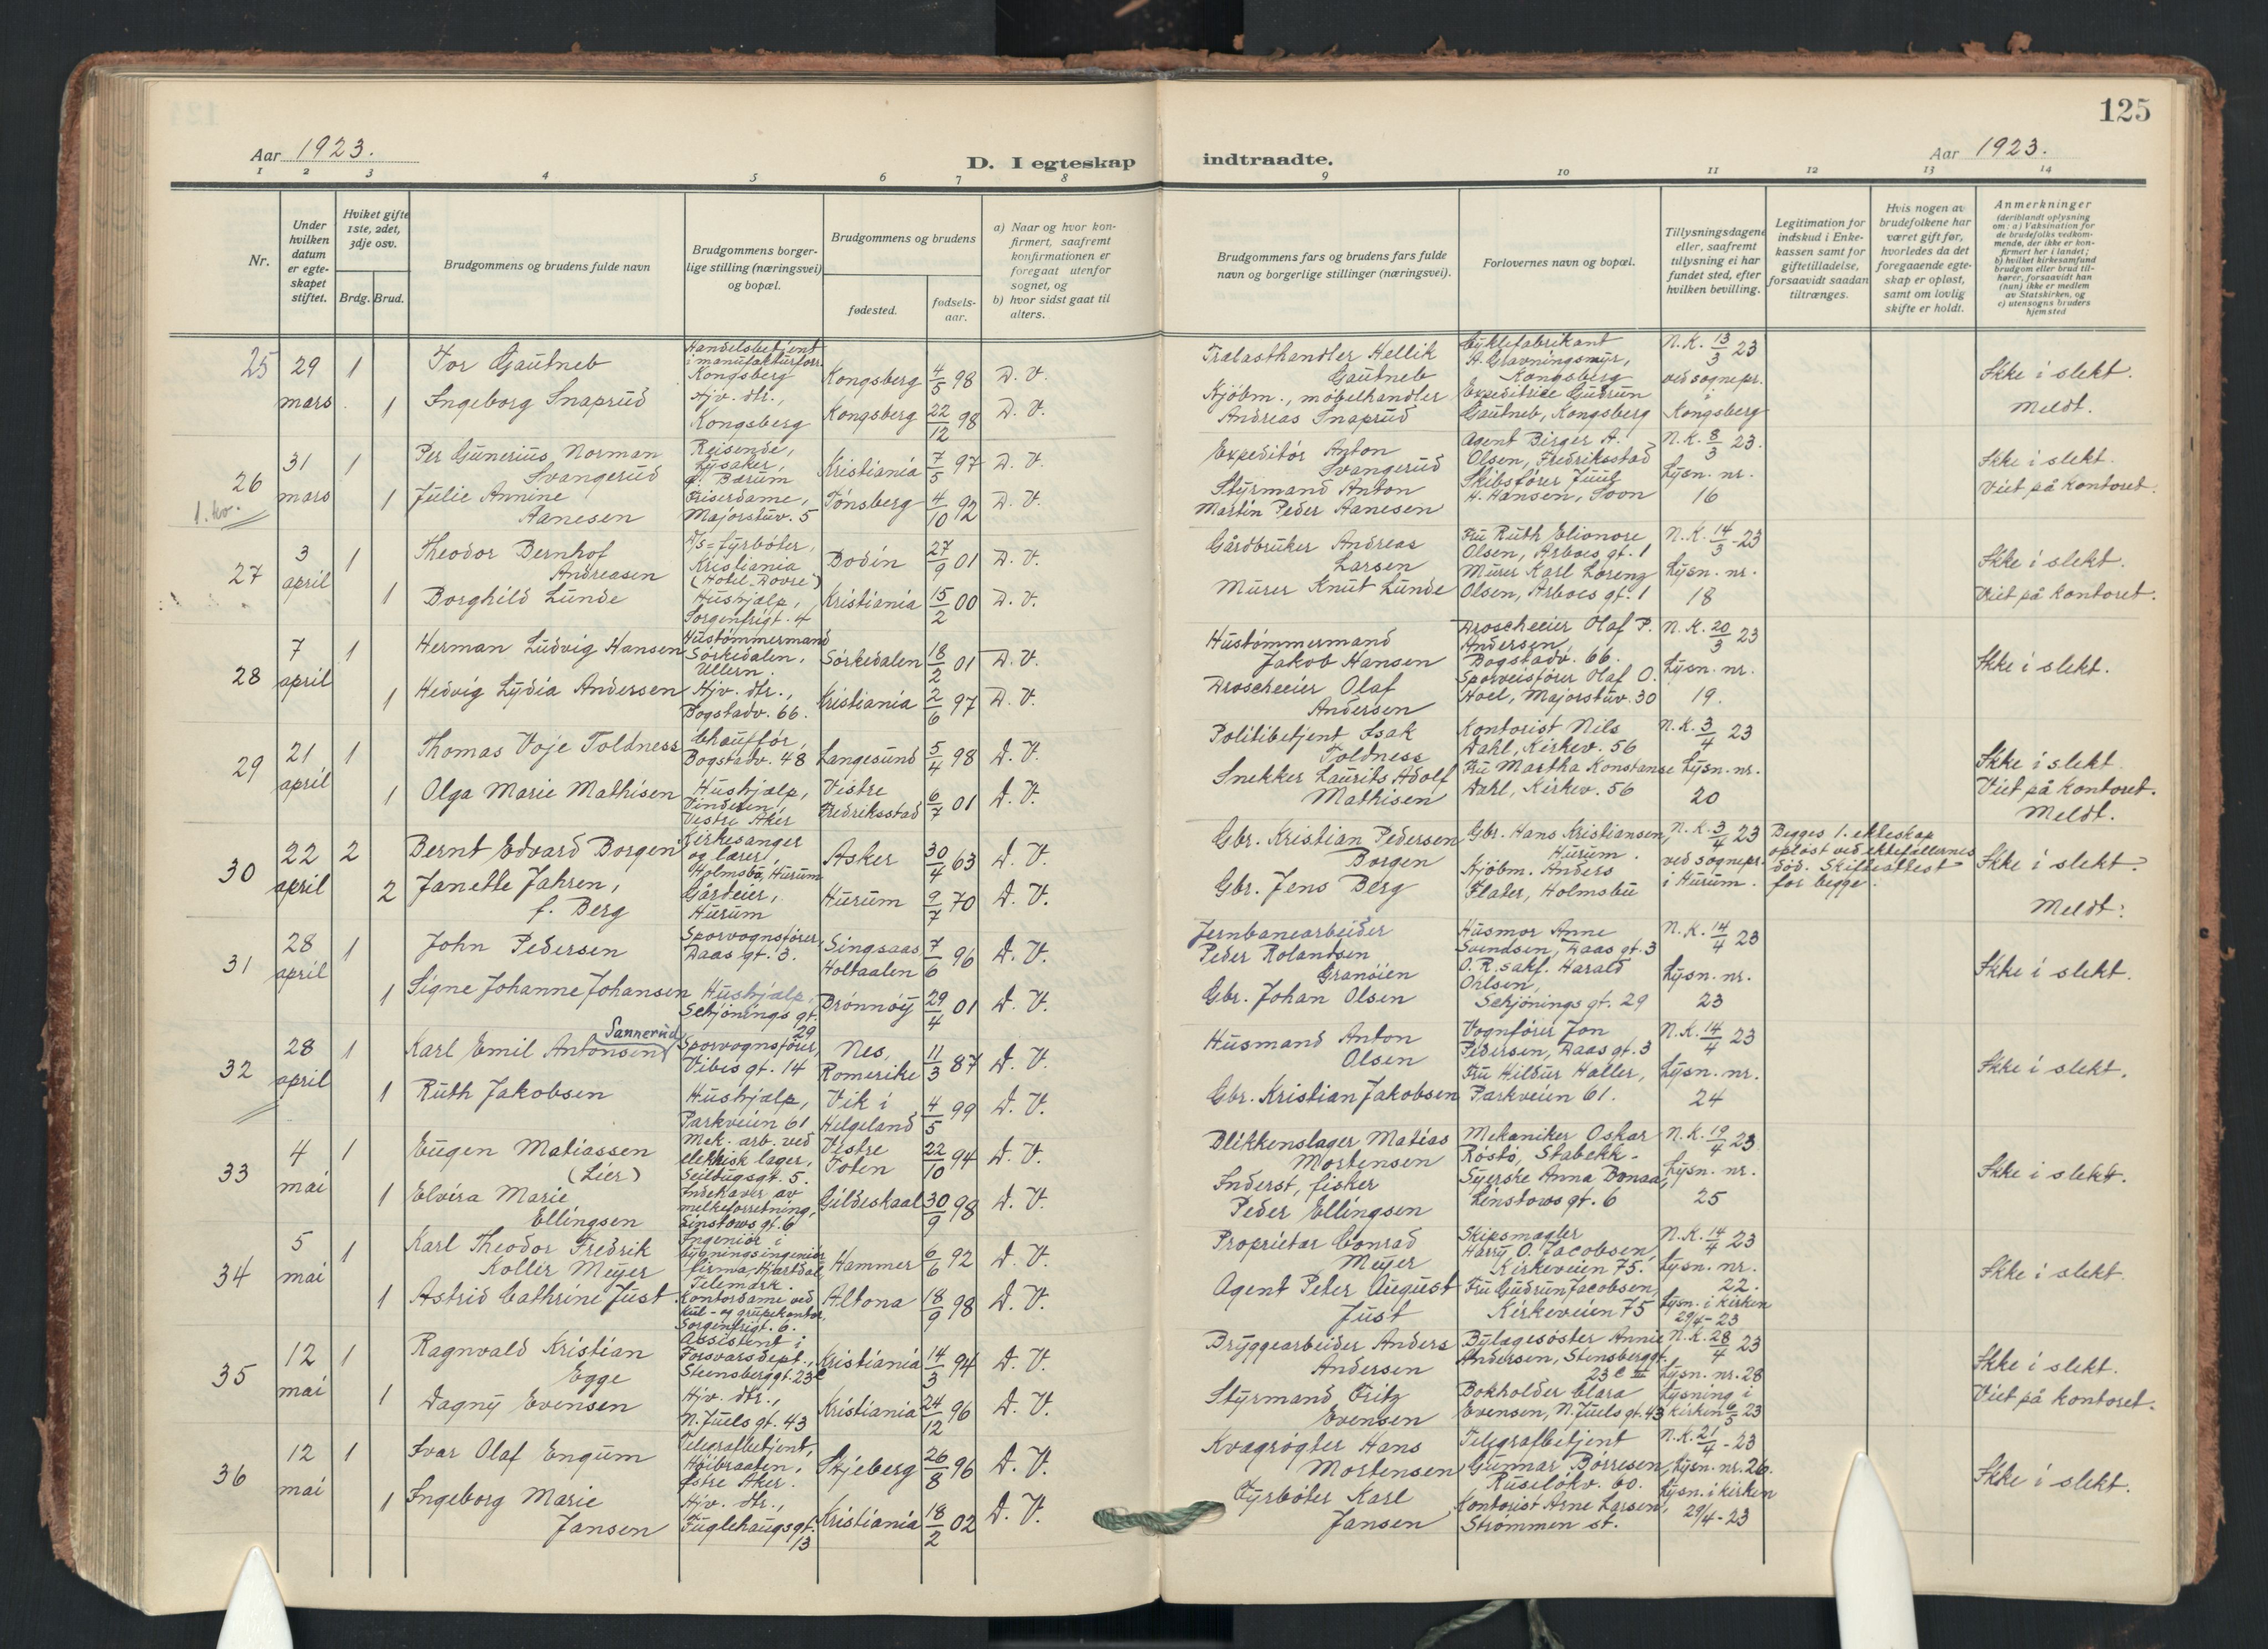 125
Aar 1923.
D. I egteskap indtraadte.
Aar 1923.
1 2 3 4 5 6 7 8 9 10 11 12 13 14
Nr.
Under hvilken datum er egteskapet stiftet.
Hviket gifte 1ste, 2det, 3dje osv.
Brdg. Brud.
Brudgommens og brudens fulde navn
Brudgommens borgerlige stilling (næringsvei) og bopæl.
Brudgommens og brudens
fødested.
fødselsaar.
a) Naar og hvor konfirmert, saafremt konfirmationen er foregaat utenfor sognet, og
b) hvor sidst gaat til alters.
Brudgommens fars og brudens fars fulde navn og borgerlige stillinger (næringsvei).
Forlovernes navn og bopæl.
Tillysningsdagene eller, saafremt tillysning ei har fundet sted, efter hvilken bevilling.
Legitimation for indskud i Enkekassen samt for giftetilladelse, forsaavidt saadan tiltrænges.
Hvis nogen av brudefolkene har været gift før, hvorledes da det foregaaende egteskap er opløst, samt om lovlig skifte er holdt.
Anmerkninger
(deriblandt oplysning om: a) Vaksination for de brudefolks vedkommende, der ikke er konfirmert her i landet; b) hvilket kirkesamfund brudgom eller brud tilhører, forsaavidt han (hun) ikke er medlem av Statskirken, og c) utensogns bruders hjemsted
25 29 mars 1 Tor Gautneb Handelsbetjent i manufakturforr. Kongsberg Kongsberg 4/5 98 D. V. Trælasthandler Hellik Gautneb Cyklefabrikant A. Gravningsmyr, Kongsberg N.K. 13/3 23 Ikke i slekt.
1 Ingeborg Snaprud Hjv. dtr., Kongsberg Kongsberg 22/12 98 D. V. Kjøbm., møbelhandler Andreas Snaprud Expeditrice Gudrun Gautneb, Kongsberg ved sognepr. i Kongsberg Meldt.
26 31 mars 1 Per Gunerius Norman Svangerud Reisende, Lysaker, Ø. Bærum Kristiania 7/5 97 D. V. Expeditør Anton Svangerud Agent Birger A. Olsen, Fredriksstad N.K. 8/3 23. Ikke i slekt.
1. kv. 1 Julie Annine Aanesen Friserdame, Majorstuv. 5 Tønsberg 4/10 92 D. V. Styrmand Anton Martin Peder Aanesen Skibsfører Juul H. Hansen, Soon Lysn. nr. 16 Viet på kontoret.
27 3 april 1 Theodor Bernhof Andreasen D/s=fyrbøter, Kristiania (Hotel Dovre) Bodin 27/9 01 D. V. Gårdbruker Andreas Larsen Fru Ruth Elionore Olsen, Arboes gt. 1 N.K. 14/3-23 Ikke i slekt.
1 Borghild Lunde Hushjælp, Sorgenfrigt. 4 Kristiania 15/2 00 D. V. Murer Knut Lunde Murer Karl Lorenz Olsen, Arboes gt. 1 Lysn. nr. 18 Viet på kontoret.
28 7 april 1 Herman Ludvig Hansen Hustømmermand Sørkedalen, Ullern. Sørkedalen 18/2 01 D. V. Hustømmermand Jakob Hansen Droscheeier Olaf P. Andersen, Bogstadv. 66. N.K. 20/3 23 Ikke i slekt.
1 Hedvig Lydia Andersen Hjv. dtr., Bogstadv. 66. Kristiania 2/6 97 D. V. Droscheeier Olaf Andersen Sporveisfører Olaf O. Hoel, Majorstuv. 30 Lysn. nr. 19.
29 21 april 1 Thomas Voje Toldness Chauffør, Bogstadv. 48 Langesund 5/4 98 D. V. Politibetjent Isak Toldness Kontorist Nils Dahl, Kirkev. 56 N.K. 3/4 23 Ikke i slekt
1 Olga Marie Mathisen Hushjælp, Vinderen, Vestre Aker Vestre Fredriksstad 6/7 01 D. V. Snekker Laurits Adolf Mathisen Fru Martha Konstanse Dahl, Kirkev. 56 Lysn. nr. 20 Viet på kontoret. Meldt.
30 22 april 2 Bernt Edvard Borgen Kirkesanger og lærer, Holmsbo, Hurum Asker 30/4 63 D. V. Gbr. Kristian Pedersen Borgen Gbr. Hans Kristiansen, Hurum. N.K. 3/4 23 Begges 1. ekteskap opløst ved ektefællernes død. Skifteattest for begge. Ikke i slekt.
2 Janette Jahren, f. Berg Gårdeier, Hurum Hurum 9/7 70 D. V. Gbr. Jens Berg Kjøbm. Anders Flater, Holmsbu ved sognepr. i Hurum. Meldt.
31 28 april 1 John Pedersen Sporvognsfører, Daas gt. 3. Singsaas Holtaalen 7/6 96 D. V. Jernbanearbeider Peder Rolandsen Granøien Husmor Anne Svendsen, Daas gt. 3 N.K. 14/4 23 Ikke i slekt.
1 Signe Johanne Johansen Hushjælp, Schjønings gt. 29 Brønnøy 29/4 01 D. V. Gbr. Johan Olsen O. R. sakf. Harald Ohlsen, Schjønings gt. 29 Lysn. nr. 23
32 28 april 1 Karl Emil Antonsen Sannerud Sporvognsfører, Vibes gt. 14 Nes, Romerike 11/3 87 D. V. Husmand Anton Olsen Vognfører Jon Pedersen, Daas gt. 3 N.K. 14/4 23 Ikke i slekt.
1 Ruth Jakobsen Hushjælp, Parkveien 61 Vik i Helgeland 4/5 99 D. V. Gbr. Kristian Jakobsen Fru Hildur Haller, Parkveien 61. Lysn. nr. 24
33 4 mai 1 Eugen Matiassen (Lier) Mek. arb. ved elektrisk lager, Seildugsgt. 5. Vestre Toten 22/10 94 D. V. Blikkenslager Matias Mortensen Mekaniker Oskar Røstø, Stabekk. N.K. 19/4 23 Ikke i slekt.
1 Elvira Marie Ellingsen Indehaver av melkeforretning, Linstows gt. 6 Gildeskaal 30/9 98 D. V. Inderst, fisker Peder Ellingsen Syerske Anna Bonaa, Linstows gt. 6 Lysn. nr. 25
34 5 mai 1 Karl Theodor Fredrik Koller Meyer Ingeniør i bygningsingeniør firma, Hjartdal, Telemark. Hammer 6/6 92 D. V. Proprietær Conrad Meyer Skipsmægler Harry O. Jacobsen, Kirkeveien 75. N.K. 14/4 23 Ikke i slekt.
1 Astrid Cathrine Just. Kontordame ved kul- og grubekontor, Sorgenfrigt. 6. Altona 18/9 98 D. V. Agent Peter August Just Fru Gudrun Jacobsen, Kirkeveien 75 Lysn. nr. 22. Lysn. i kirken 29/4-23
35 12 mai 1 Ragnvald Kristian Egge Assistent i Forsvarsdept., Stensberggt. 23 C Kristiania 14/3 94 D. V. Bryggearbeider Anders Andersen Bylægesøster Annie Andersen, Stensberggt. 23 C III N.K. 28/4 23 Ikke i slekt.
1 Dagny Evensen Hjv. dtr., N. Juels gt. 43 Kristiania 24/12 96 D. V. Styrmand Fritz Evensen Bokholder Clara Evensen, N. Juels gt. 43 Lysn. nr. 28 Lysning i kirken 6/5 23 Viet på kontoret.
36 12 mai 1 Ivar Olaf Engum Telegrafbetjent, Høibraaten, Østre Aker. Skjeberg 26/8 96 D. V. Kvægrøgter Hans Mortensen Telegrafbetjent Gunnar Børresen, Ruseløkv. 60. N.K. 21/4-23 Ikke i slekt.
1 Ingeborg Marie Jansen Hjv. dtr., Fuglehaugsgt. 13 Kristiania 18/2 02 D. V. Fyrbøter Karl Jansen Kontorist Arne Larsen, Strømmen st. Lysn. nr. 26. Lysn. i kirken 29/4-23